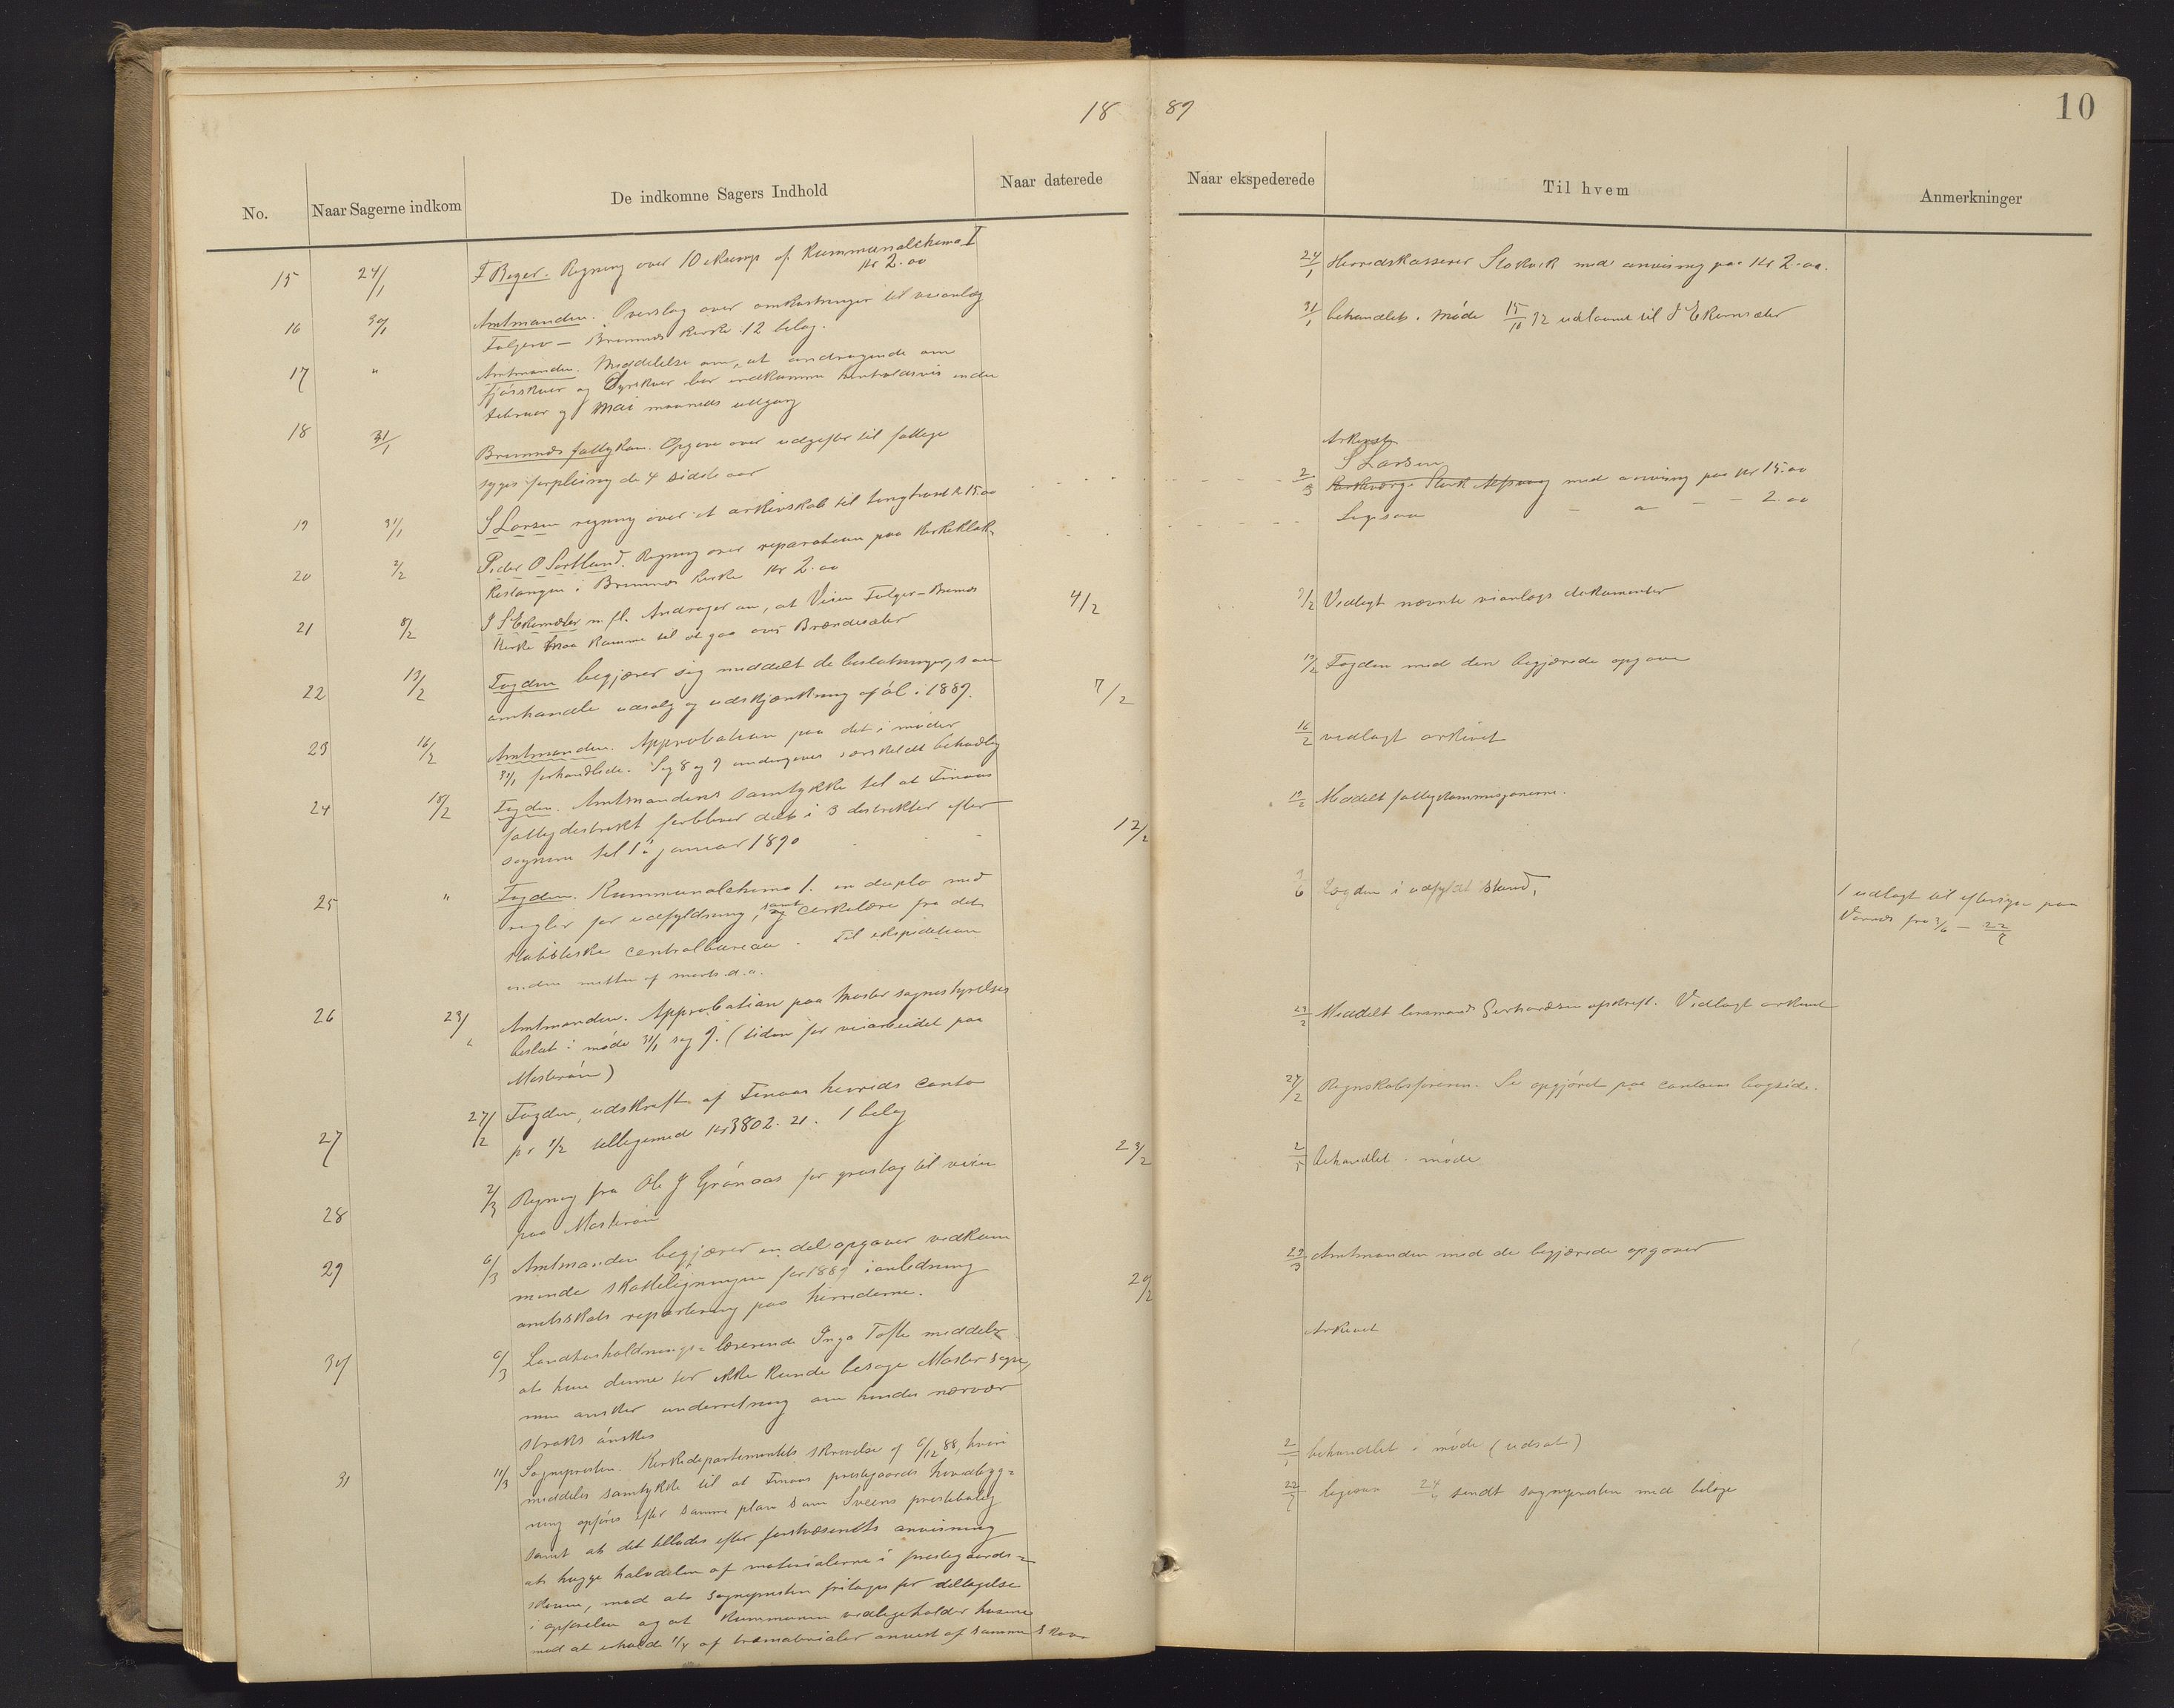 18 89
10
No.
Naar Sagerne indkom
De indkomne Sagers Indhold
Naar daterede
Naar ekspederede
Til hvem
Anmerkninger
15 24/1 F Beyer. Regning over 10 eksemp. af Kommunalskema I
Kr 2.00
24/1 Herredskasserer Stokvik med anvisning paa Kr 2.00.
16 30/1 Amtmanden. Overslag over omkostninger til veianlæg
Folger – Bremnes Kirke. 12 bilag.
31/1 behandlet i møde 15/10 92 udlaant til
17 " Amtmanden. Meddelelse om, at andragende om
Fjøsskuer og Dyrskuer bør indkomme henholdsvis inden
februar og Mai maaneds udgang
18 31/1 Bremnes fattigkom. Opgave over udgifter til fattige
syges forpleining de 4 sidste aar
Arkivet
19 31/1 S Larsen regning over et arkivskab til kr 15.00
2/3 S Larsen med anvisning paa Kr 15.00
20 2/2 Peder O Sortland. Regning over reparation paa Kirkeklok-
kestangen i Bremnes Kirke Kr 2.00
Ligesaa – " – – 2.00
21 8/2 m. fl. Andrager om, at Veien Folger – Bremnes
Kirke maa komme til at gaa over Brændesæter
4/2
9/2 Vedlagt nævnte veianlægs dokumenter
22 13/2 Fogden begjærer sig meddelt de beslutninger, som
omhandle udsalg og udskjænkning af øl i 1889.
7/2
15/2 Fogden med den begjærede opgave
23 16/2 Amtmanden. Approbation paa det i møder
31/1 forhandlede. Sag 8 og 9 undergives særskildt behandling
16/2 vedlagt arkivet
24 18/2 Fogden. Amtmandens samtykke til at Finaas
fattigdistrikt forbliver delt i 3 distrikter efter
sognene til 1ste januar 1890
12/2
19/2 Meddelt fattigkommisjonerne.
25 " Fogden. Kommunalskema 1. in duplo med
regler for udfyldning, samt cirkulære fra det
statistiske centralbureau. Til ekspedition
inden midten af marts d.a.
3/6 Fogden i udfyldt stand.
1 udlagt til eftersyn paa
Vornes fra 3/6 – 22/7
26 23/2 Amtmanden. Approbation paa Moster sognestyrelses
beslut. i møde 31/1 sag 9. (tiden for veiarbeidet paa
Mosterøen)
23/2 Meddelt lensmand Gerhardsen afskrift. Vedlagt arkivet
27 27/2 Fogden, udskrift af Finaas herreds conto
pr 1/2 tillegemed Kr 3802.21. 1 bilag
23/2
27/2 Regnskabsføreren. Se opgjøret paa contoens bagside.
28 2/3 Regning fra Ole J Grønaas for grustag til veien
paa Mosterøen
2/5 behandlet i møde
29 6/3 Amtmanden begjærer en del opgaver vedkom
mende skatteligningen for 1889 i anledning
amtsskats repartering paa herrederne.
20/2
29/3 Amtmanden med de begjærede opgaver
30 6/3 Landhusholdnings-lærerinde Inga Tofte meddeler
at hun denne tur ikke kunde besøge Moster sogn,
men ønsker underretning om hendes nærvær
straks ønskes
Arkivet
31 11/3 Sognepresten. Kirkedepartementets skrivelse af 6/12 88, hvori
meddeles samtykke til at Finaas prestegaards hovedbyg-
ning opføres efter samme plan som Sveens prestebolig
samt at det tillades efter forstvæsenets anvisning
at hugge halvdelen af materialerne i prestegaards-
skoven, mod at sognepresten fritages for deltagelse
i opførelsen og at Kommunen vedligeholder husene
mod at erholde 1/4 af træmaterialer anvist af samme skov
2/5 behandlet i møde (udsat)
22/7 ligesaa 24/7 sendt sognepresten med bilage